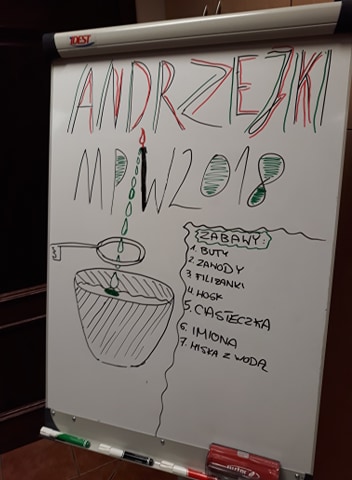 TOEST
ANDRZEJKI
MPiW2018
ZABAWY:
1. BUTY
2. ZAWODY
3. FILIŻANKI
4. WOSK
5. CIASTECZKA
6. IMIONA
7. MISKA Z WODĄ